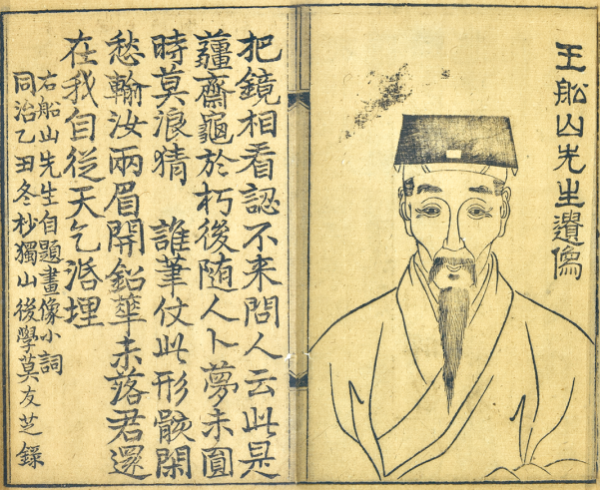 王舩山先生遺像
把鏡相看認不来問人云此是
薑齋龜於朽後随人卜夢未圓
時莫浪猜　誰筆仗此形骸閑
愁輸汝兩眉開鉛華未落君還
在我自從天乞活埋
右船山先生自題畫像小詞
同治乙丑冬杪獨山後學莫友芝錄